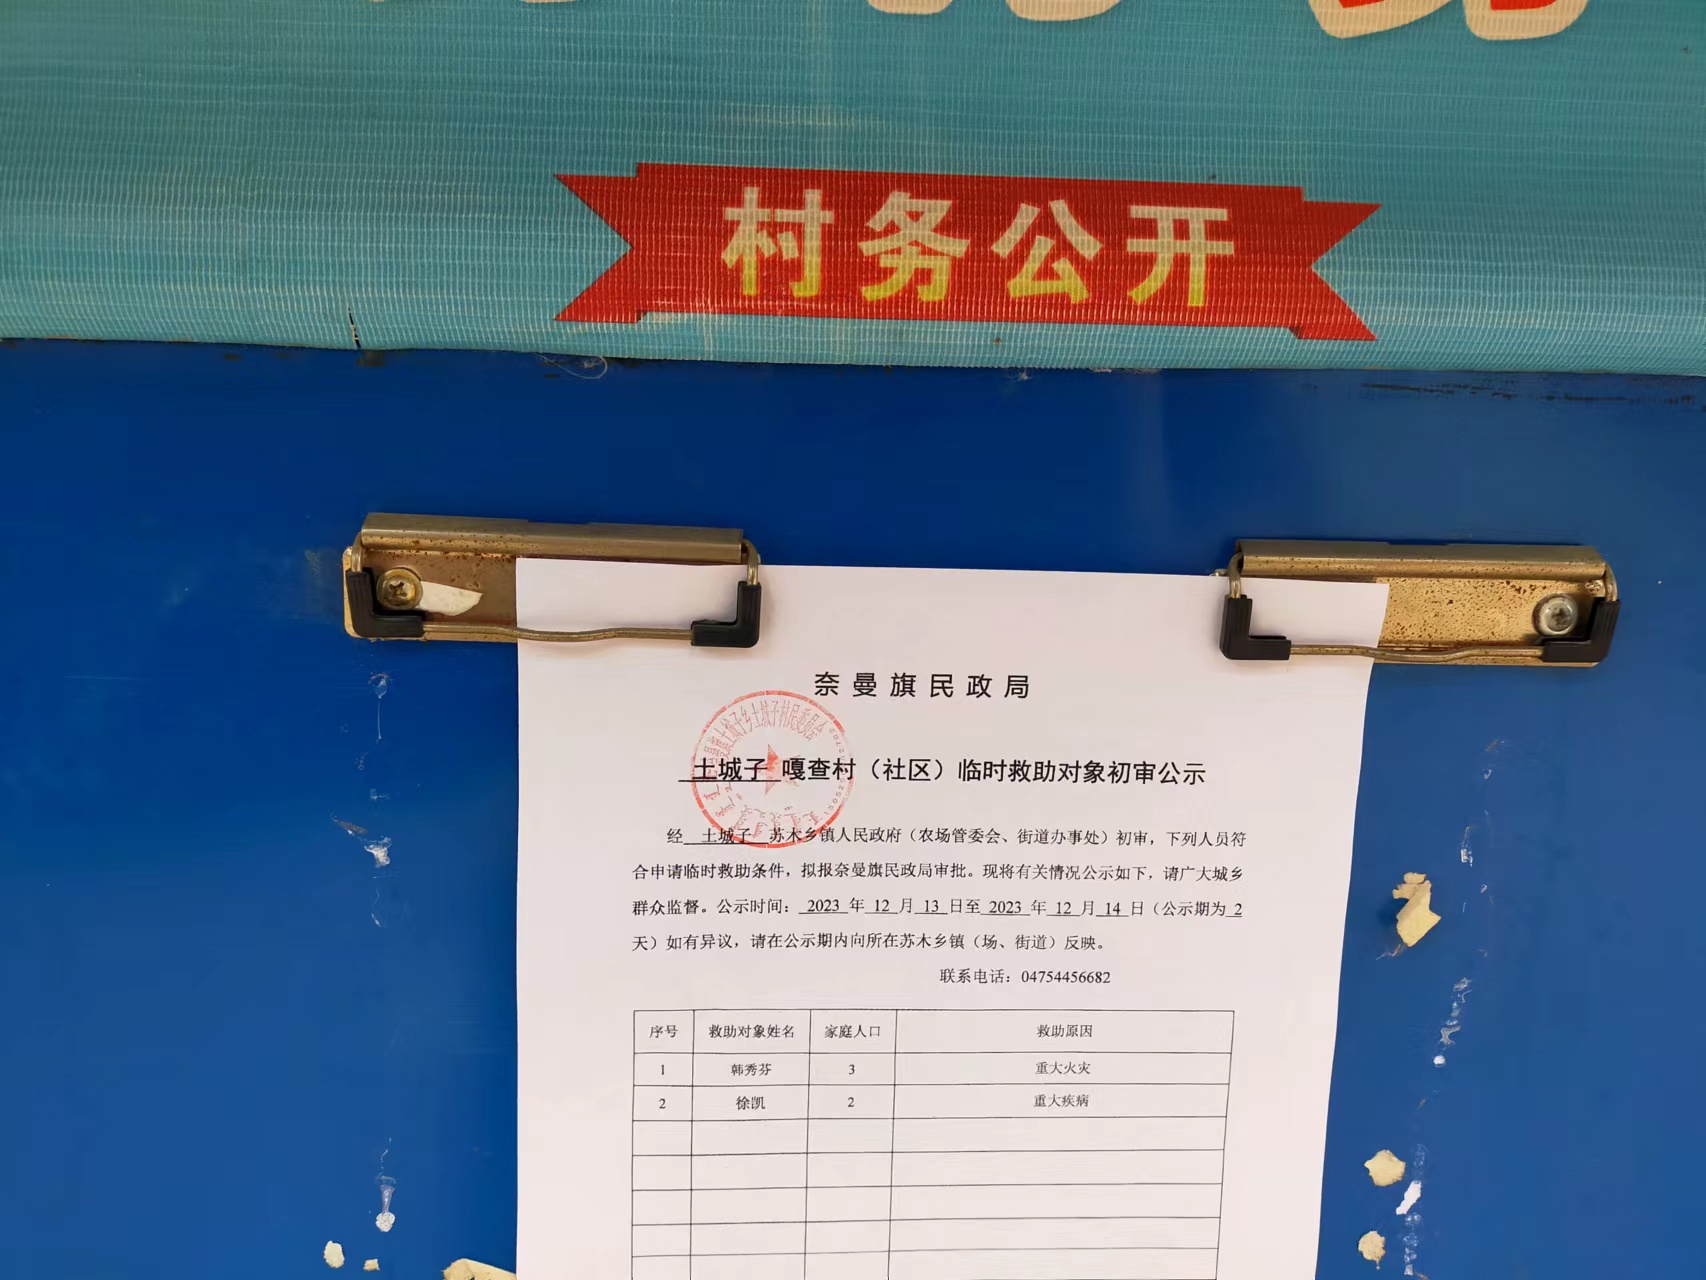 村务公开
奈曼旗民政局
土城子 嘎查村（社区）临时救助对象初审公示
经 土城子 苏木乡镇人民政府（农场管委会、街道办事处）初审，下列人员符
合申请临时救助条件，拟报奈曼旗民政局审批。现将有关情况公示如下，请广大城乡
群众监督。公示时间：2023 年 12 月 13 日至 2023 年 12 月 14 日（公示期为 2
天）如有异议，请在公示期内向所在苏木乡镇（场、街道）反映。
联系电话：04754456682
序号 救助对象姓名 家庭人口 救助原因
1 韩秀芬 3 重大火灾
2 徐凯 2 重大疾病